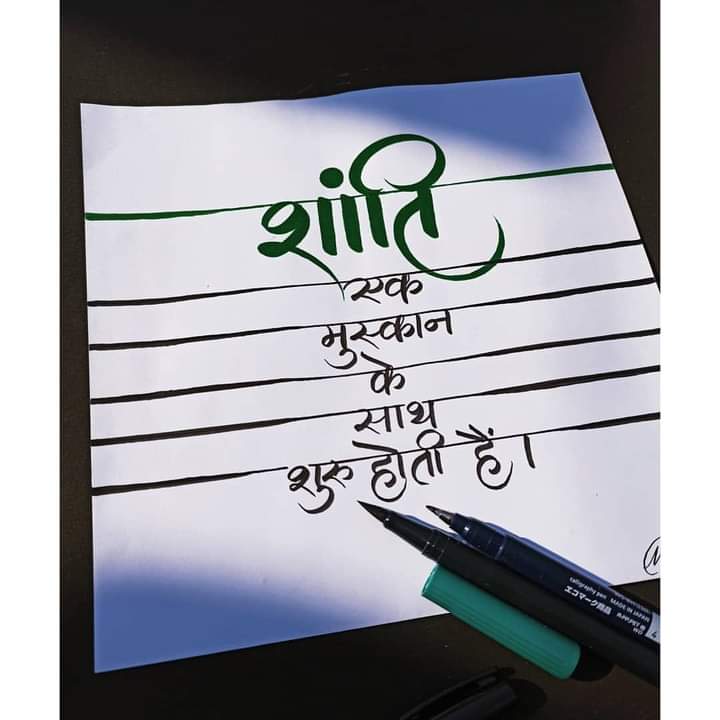 शांति
एक
मुस्कान
के
साथ
शुरु होती हैं।
calligraphy pen MADE IN JAPAN
エコマーク商品